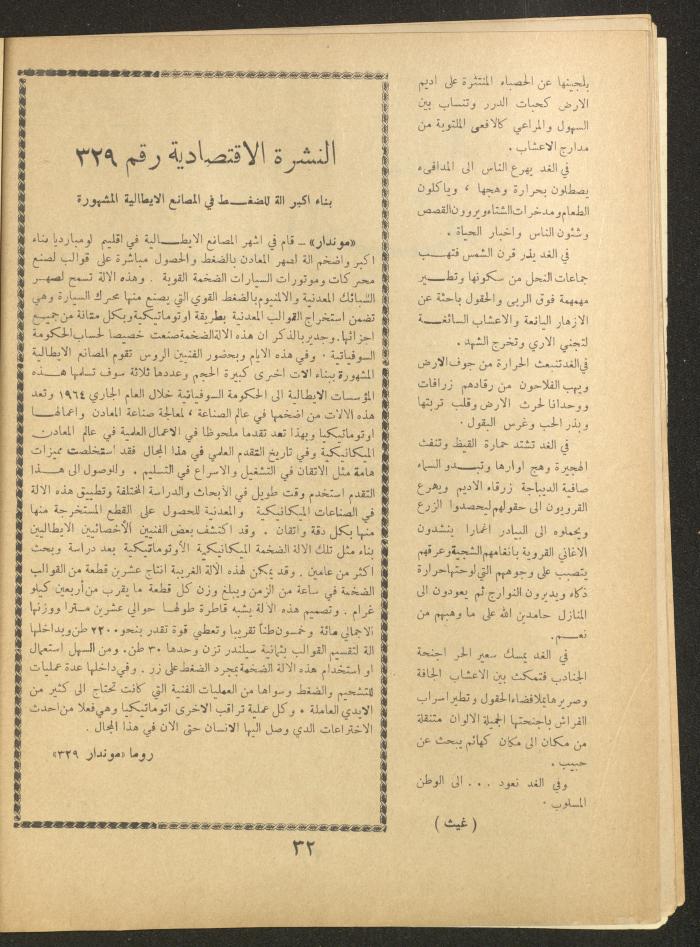 بلجينها عن الحصباء المنتثرة على اديم
الارض كحبات الدرر وتنساب بين
السهول والمراعي كالافعى الملتوية من
مدارج الاعشاب .
في الغد يهرع الناس الى المدافىء
يصطلون بحرارة وهجها ، وياكلون
الطعام ومدخرات الشتاء ويروون القصص
وشئون الناس واخبار الحياة .
في الغد يذر قرن الشمس فتهب
جماعات النحل من سكونها وتطير
مهمهمة فوق الربى والحقول باحثة عن
الازهار اليانعة والاعشاب السائغة
لتجني الاري وتخرج الشهد .
في الغد تنبعث الحرارة من جوف الارض
ويهب الفلاحون من رقادهم زرافات
ووحدانا لحرث الارض وقلب تربتها
وبذر الحب وغرس البقول .
في الغد تشتد حمارة القيظ وتنفث
الهجيرة وهج اوارها وتبدو السماء
صافية الديباجة زرقاء الاديم ويهرع
القرويون الى حقولهم ليحصدوا الزرع
ويحملوه الى البيادر اغمارا ينشدون
الاغاني القروية بانغامهم الشجية وعرقهم
يتصبب على وجوههم التي لوحتها حرارة
ذكاء ويديرون النوارج ثم يعودون الى
المنازل حامدين الله على ما وهبهم من
نعم .
في الغد يمسك سعير الحر اجنحة
الجنادب فتمكث بين الاعشاب الجافة
وصريرها يملا فضاء الحقول وتطير اسراب
الفراش باجنحتها الجميلة الالوان متنقلة
من مكان الى مكان كهائم يبحث عن
حبيب .
وفي الغد نعود . . . الى الوطن
المسلوب .
( غيث )
النشرة الاقتصادية رقم ٣٢٩
بناء اكبر الة للضغط في المصانع الايطالية المشهورة
«موندار» – قام في اشهر المصانع الايطالية في اقليم لومبارديا بناء
اكبر واضخم الة لصهر المعادن بالضغط والحصول مباشرة على قوالب لصنع
محركات وموتورات السيارات الضخمة القوية . وهذه الالة تسمح لصهر
الشبائك المعدنية والالمنيوم بالضغط القوي التي يصنع منها محرك السيارة وهي
تضمن استخراج القوالب المعدنية بطريقة اوتوماتيكية وبكل متانة من جميع
اجزائها. وجدير بالذكر ان هذه الالة الضخمة صنعت خصيصا لحساب الحكومة
السوفياتية . وفي هذه الايام وبحضور الفنيين الروس تقوم المصانع الايطالية
المشهورة ببناء الات اخرى كبيرة الحجم وعددها ثلاثة سوف تسلمها هذه
المؤسسات الايطالية الى الحكومة السوفياتية خلال العام الجاري ١٩٦٤ وتعد
هذه الالات من اضخمها في عالم الصناعة ، لمعالجة صناعة المعادن واعمالها
اوتوماتيكيا وبهذا تعد تقدما ملحوظا في الاعمال العلمية في عالم المعادن
الميكانيكية وفي تاريخ التقدم العلمي في هذا المجال فقد استخلصت مميزات
هامة مثل الاتقان في التشغيل والاسراع في التسليم . وللوصول الى هذا
التقدم استخدم وقت طويل في الأبحاث والدراسة المختلفة وتطبيق هذه الالة
في الصناعات الميكانيكية والمعدنية للحصول على القطع المستخرجة منها
منها بكل دقة واتقان . وقد اكتشف بعض الفنيين الأخصائيين الايطاليين
بناء مثل تلك الالة الضخمة الميكانيكية الأوتوماتيكية بعد دراسة وبحث
اكثر من عامين . وقد يمكن لهذه الآلة الغريبة انتاج عشرين قطعة من القوالب
الضخمة في ساعة من الزمن ويبلغ وزن كل قطعة ما يقرب من أربعين كيلو
غرام . وتصميم هذه الالة يشبه قاطرة طولها حوالي عشرين مترا ووزنها
الاجمالي مائة وخمسون طناً تقريبا وتعطي قوة تقدر بنحو ٢٢٠٠ طن وبداخلها
الة لتقسيم القوالب بثمانية سيلندر تزن وحدها ٣٠ طن. ومن السهل استعمال
او استخدام هذه الالة الضخمة بمجرد الضغط على زر . وفي داخلها عدة عمليات
للتشحيم والضغط وسواها من العمليات الفنية التي كانت تحتاج الى كثير من
الايدي العاملة . وكل عملية تراقب الاخرى اتوماتيكيا وهي فعلا من احدث
الاختراعات الدي وصل اليها الانسان حتى الان في هذا المجال .
روما «موندار ٣٢٩»
٣٢